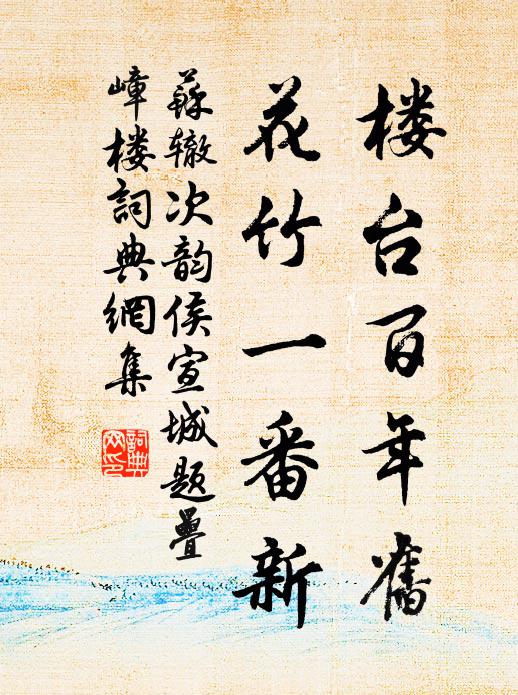 楼台百年舊
花竹一番新
蘇辙次韵侯宣城题疊
嶂楼詞典網集
詞典
网印